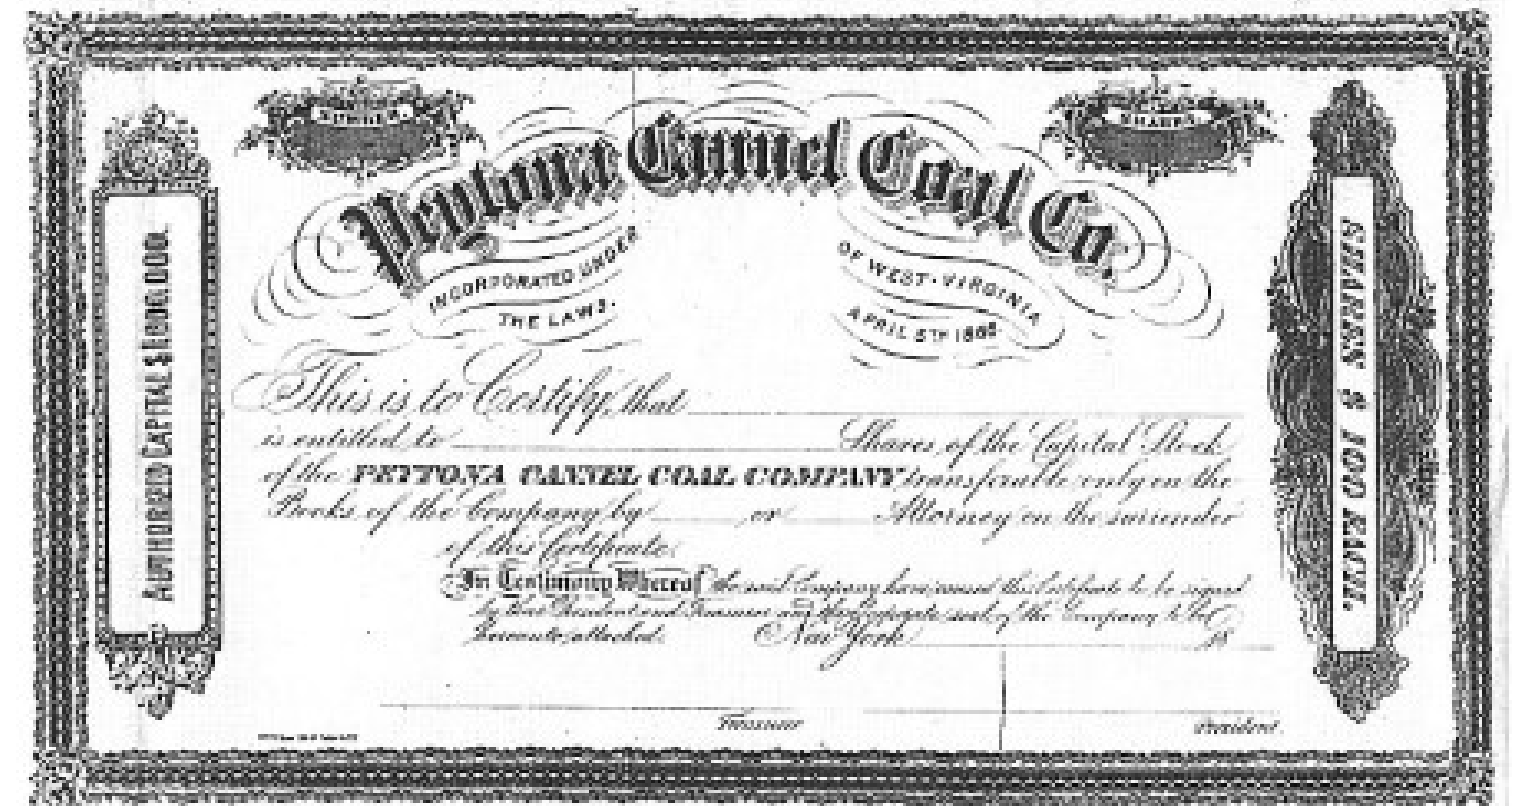 NUMBER
SHARES
Peytona Cannel Coal Co.
INCORPORATED UNDER
THE LAWS.
OF WEST-VIRGINIA
APRIL 5TH
AUTHORIZED CAPITAL $
SHARES $ 100 EACH.
This is to Certify, that
is entitled to Shares of the Capital Stock
of the PEYTONA CANNEL COAL COMPANY transferable only on the
Books of the Company by or Attorney on the surrender
of this Certificate.
In Testimony Whereof the said Company have caused this Certificate to be signed
by their President and Treasurer and the Corporate seal of the Company to be
hereunto attached. New York 18
Treasurer
President.